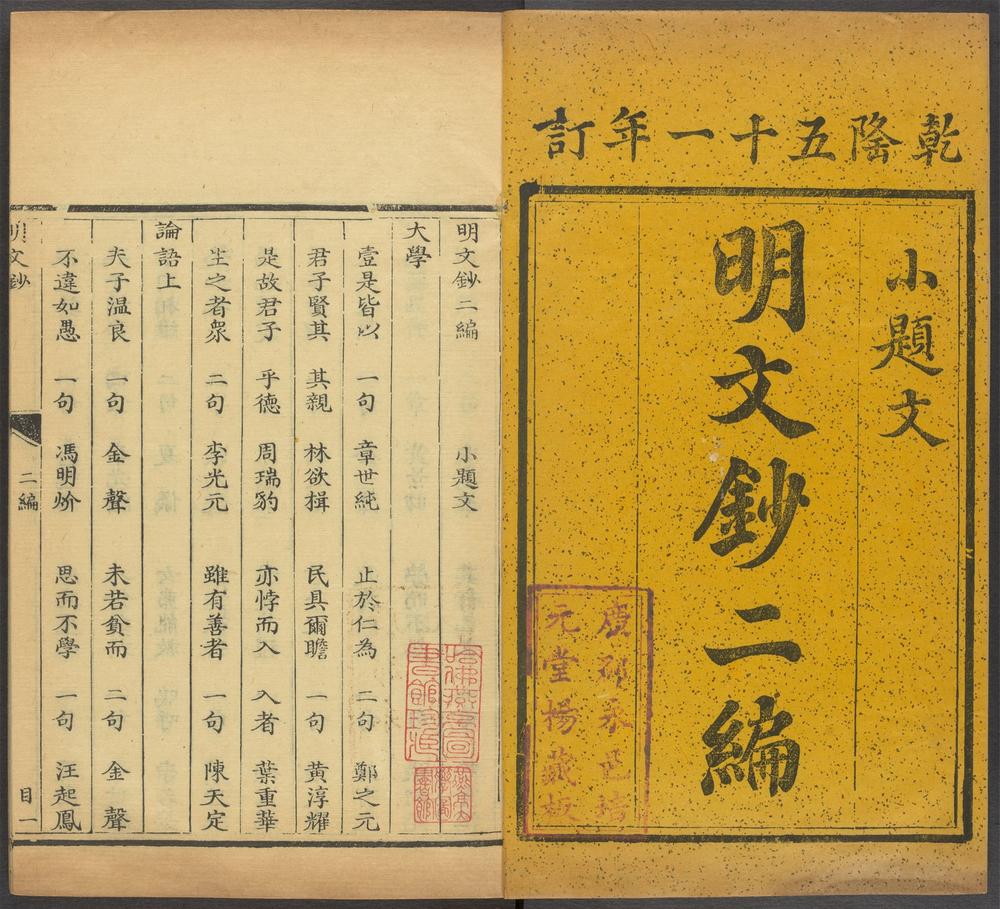 乾隆五十一年訂
小題文
明文鈔二編
元堂楊藏板
明文鈔二編 小題文
大學
壹是皆以 一句 章世純 止於仁為 二句 鄭之元
君子賢其 其親 林欲楫 民具爾瞻 一句 黃淳耀
是故君子 乎德 周瑞豹 亦悖而入 入者 葉重華
生之者眾 二句 李光元 雖有善者 一句 陳天定
論語上
夫子温良 一句 金聲 未若貧而 二句 金聲
不違如愚 一句 馮明玠 思而不學 一句 汪起鳳
明文鈔 二編 目一
哈佛燕京圖書館珍藏